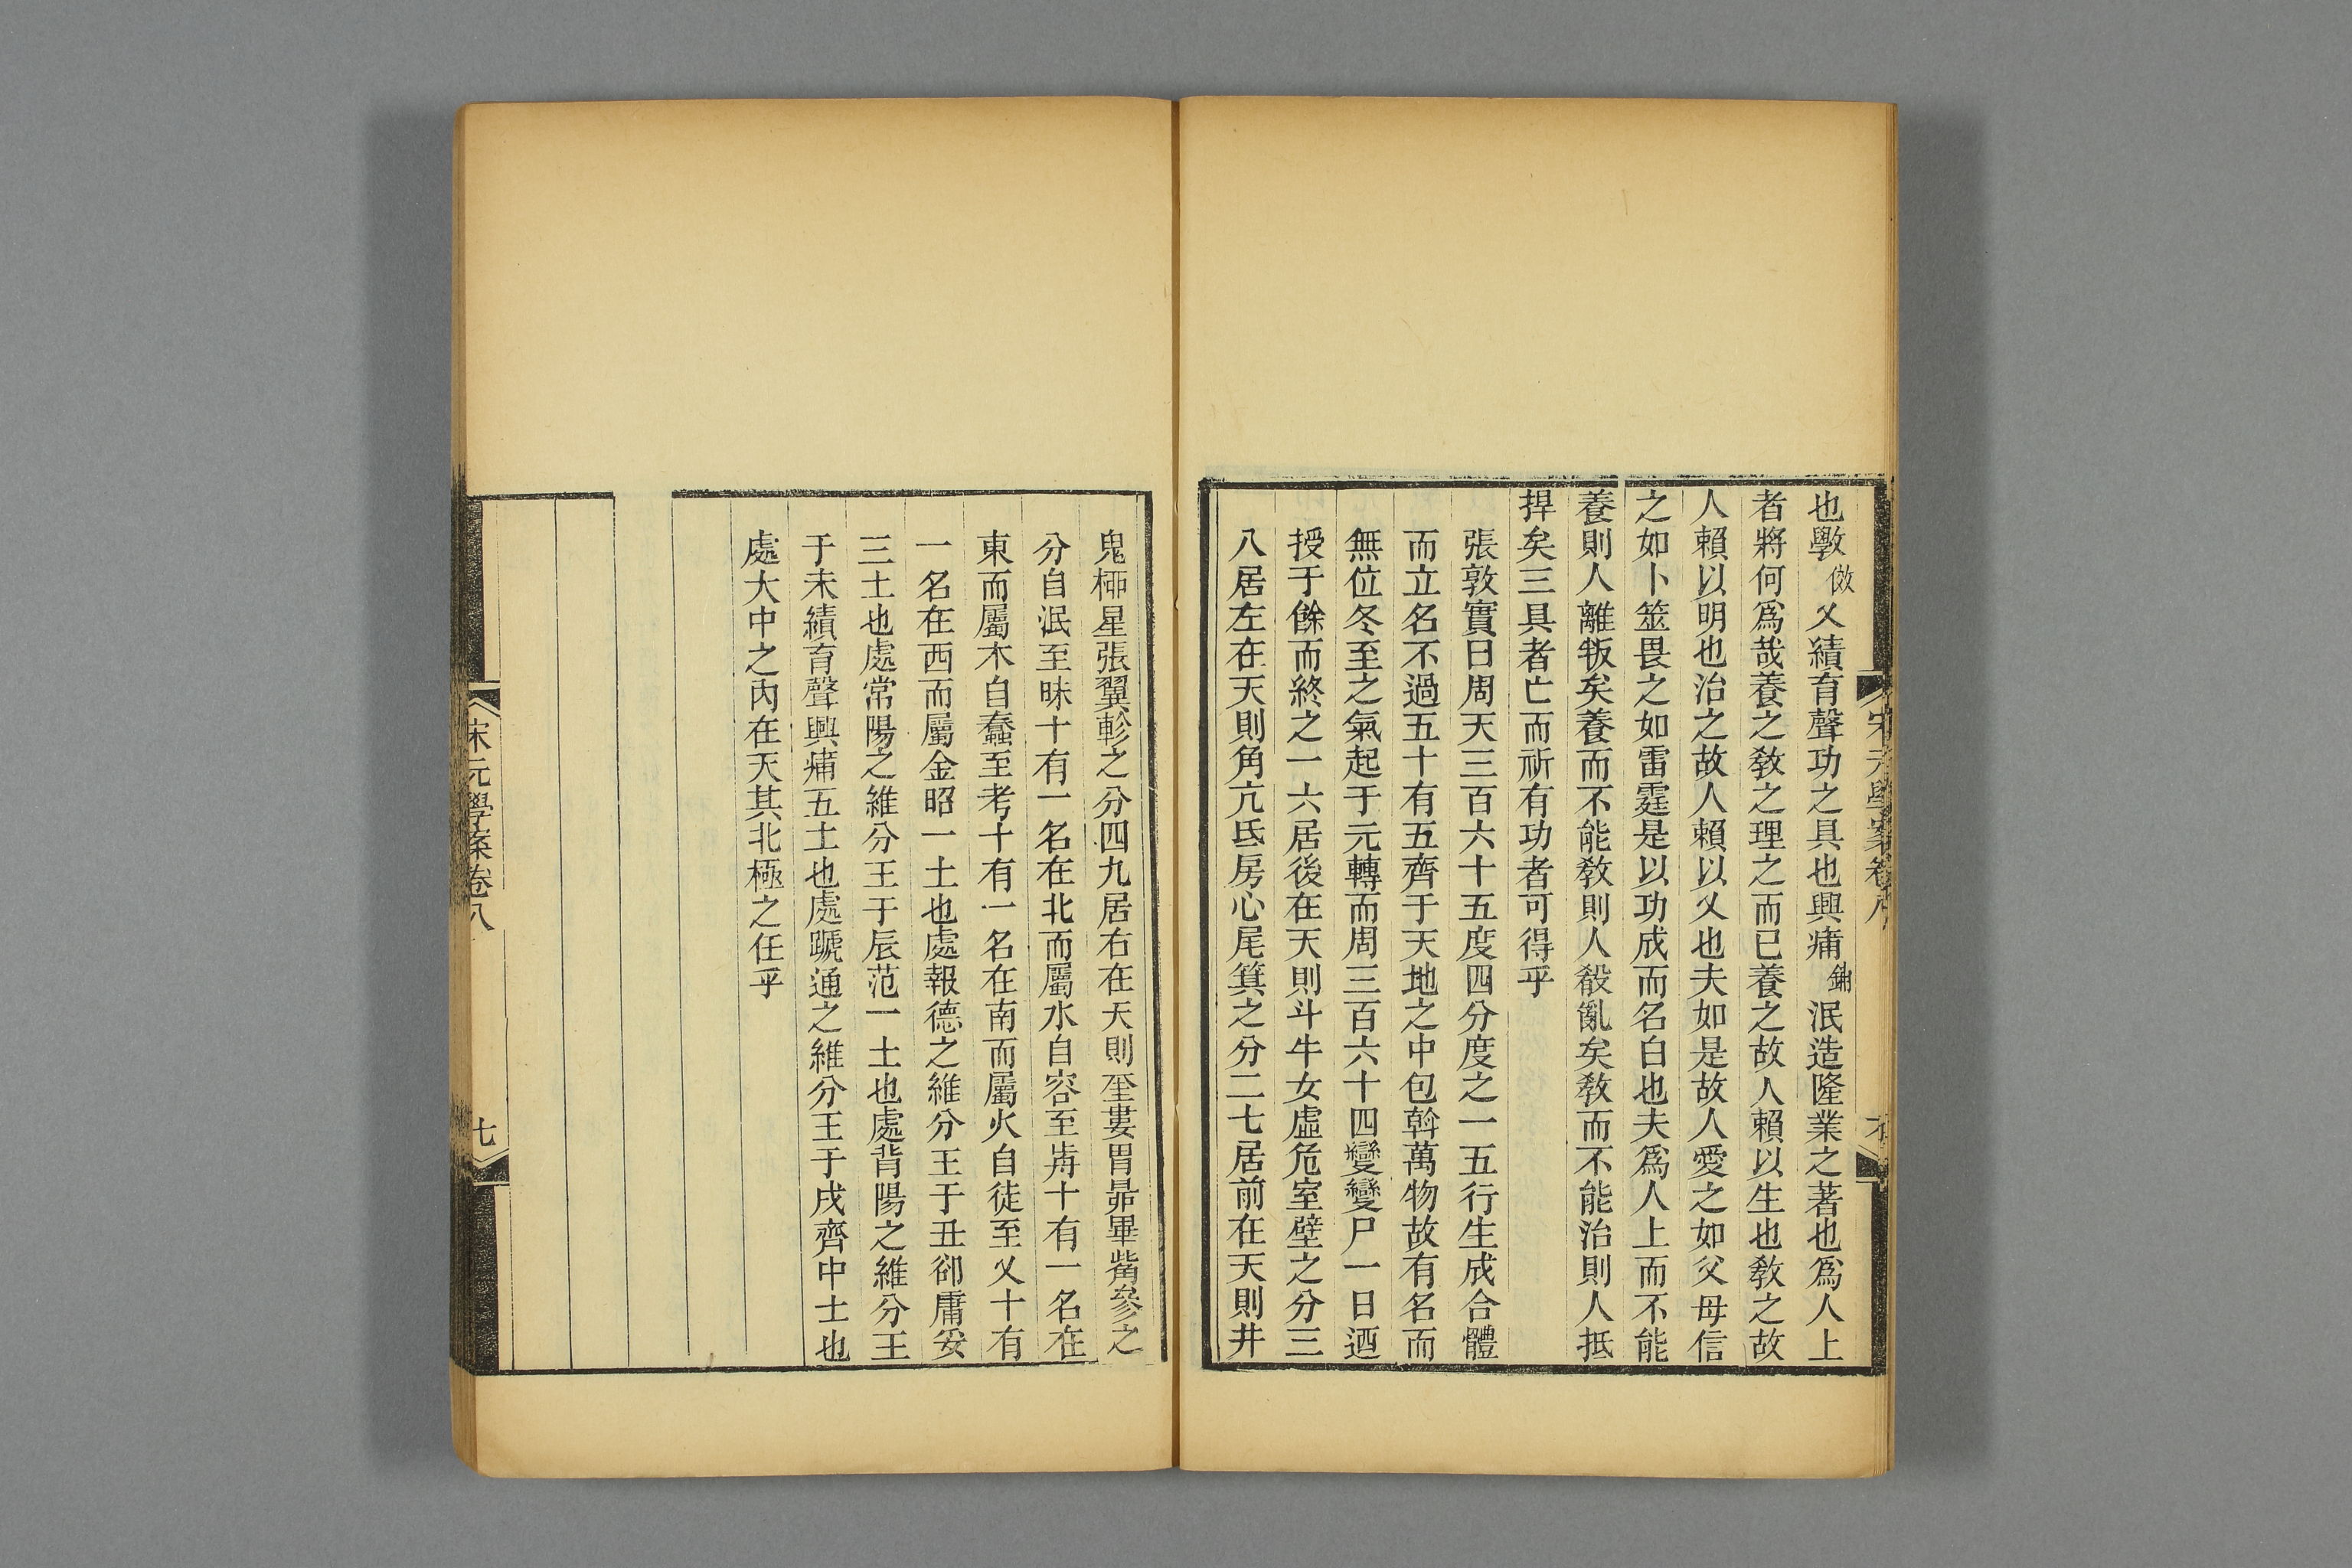 宋元學案卷八
也斆傚乂績育聲功之具也興痡鋪泯造隆業之著也爲人上
者將何爲哉養之敎之理之而已養之故人賴以生也敎之故
人賴以明也治之故人賴以乂也夫如是故人愛之如父母信
之如卜筮畏之如雷霆是以功成而名白也夫爲人上而不能
養則人離叛矣養而不能敎則人殽亂矣敎而不能治則人抵
捍矣三具者亡而祈有功者可得乎
張敦實曰周天三百六十五度四分度之一五行生成合體
而立名不過五十有五齊于天地之中包斡萬物故有名而
無位冬至之氣起于元轉而周三百六十四變變尸一日迺
授于餘而終之一六居後在天則斗牛女虛危室壁之分三
八居左在天則角亢氐房心尾箕之分二七居前在天則井
鬼桺星張翼軫之分四九居右在天則奎婁胃昴畢觜參之
分自泯至昧十有一名在北而屬水自容至歬十有一名在
東而屬木自蠢至考十有一名在南而屬火自徒至乂十有
一名在西而屬金昭一土也處報德之維分王于丑卻庸妥
三土也處常陽之維分王于辰范一土也處背陽之維分王
于未績育聲興痡五土也處蹏通之維分王于戌齊中士也
處大中之內在天其北極之任乎
宋元學案卷八
七